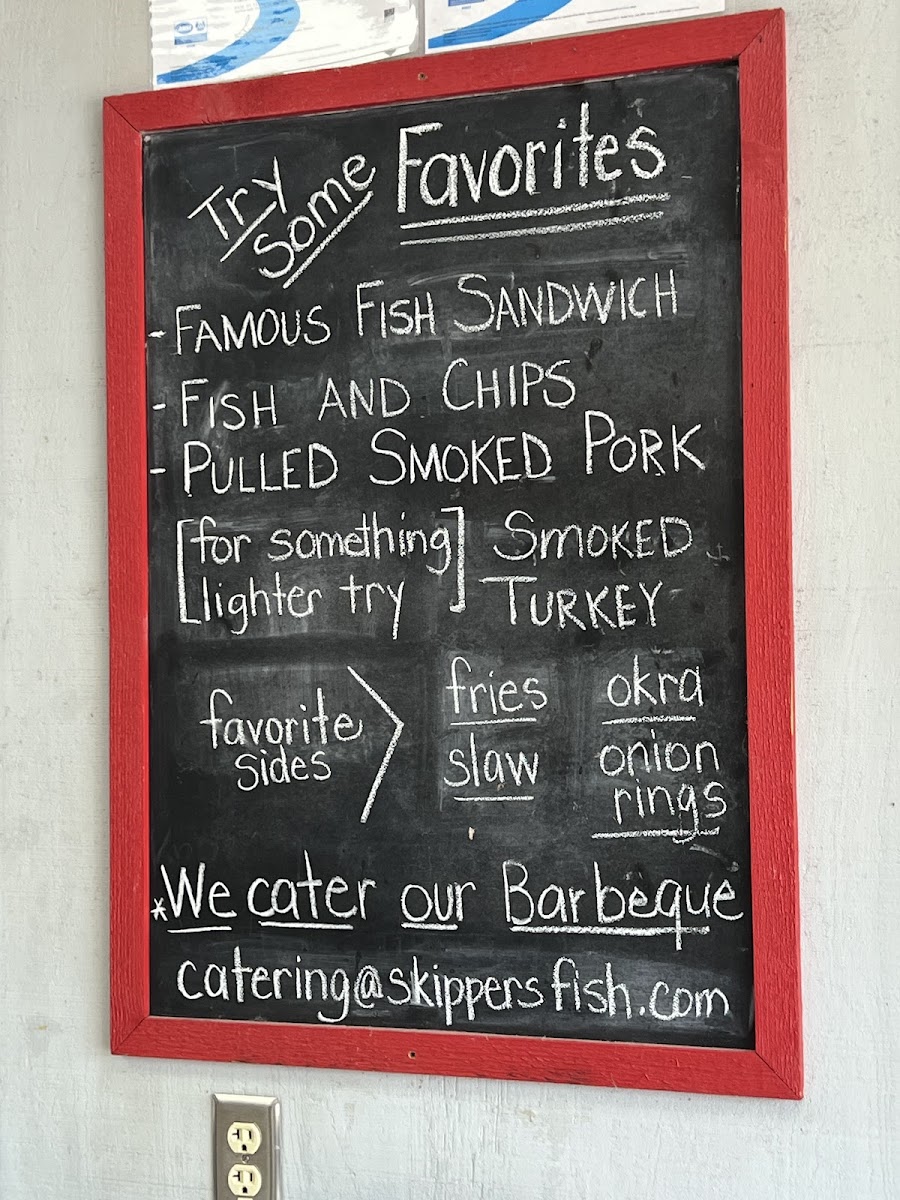 Try Some Favorites
- FAMOUS FISH SANDWICH
- FISH AND CHIPS
- PULLED SMOKED PORK
[for something lighter try] SMOKED TURKEY
favorite sides > fries okra
slaw onion rings
*We cater our Barbeque
catering@skippersfish.com